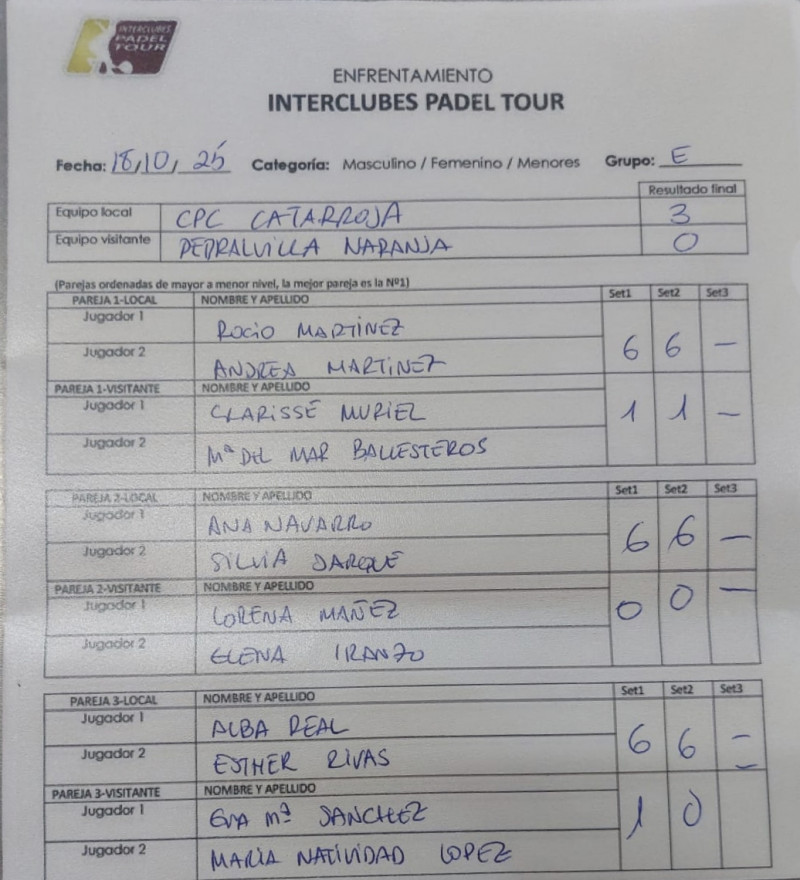 INTERCLUBES
PADEL
TOUR
ENFRENTAMIENTO
INTERCLUBES PADEL TOUR
Fecha: 18/10/25 Categoría: Masculino / Femenino / Menores Grupo: E
Resultado final
Equipo local CPC CATARROJA 3
Equipo visitante PEDRALVILLA NARANJA 0
(Parejas ordenadas de mayor a menor nivel, la mejor pareja es la Nº1)
PAREJA 1-LOCAL NOMBRE Y APELLIDO Set1 Set2 Set3
Jugador 1 ROCIO MARTÍNEZ
6 6 —
Jugador 2 ANDREA MARTINEZ
PAREJA 1-VISITANTE NOMBRE Y APELLIDO
Jugador 1 CLARISSE MURIEL
1 1 —
Jugador 2 Mª DEL MAR BALLESTEROS
PAREJA 2-LOCAL NOMBRE Y APELLIDO Set1 Set2 Set3
Jugador 1 ANA NAVARRO
6 6 —
Jugador 2 SILVIA DARQUE
PAREJA 2-VISITANTE NOMBRE Y APELLIDO
Jugador 1 LORENA MAÑEZ
0 0 —
Jugador 2 ELENA IRANZO
PAREJA 3-LOCAL NOMBRE Y APELLIDO Set1 Set2 Set3
Jugador 1 ALBA REAL
6 6 —
Jugador 2 ESTHER RIVAS
PAREJA 3-VISITANTE NOMBRE Y APELLIDO —
Jugador 1 EVA Mª SANCHEZ
1 0
Jugador 2 MARIA NATIVIDAD LOPEZ